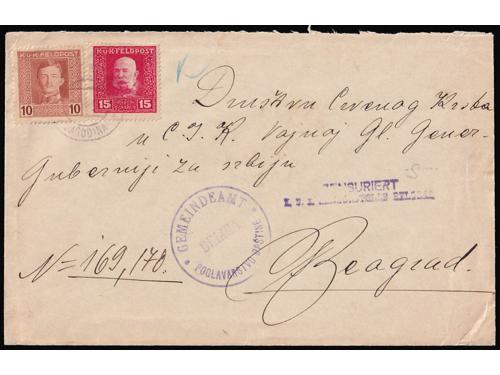 K.u.K. FELDPOST
10 10
K.u.K. FELDPOST
15 15
Društvu Crvenog Krsta
u C. I. K. Vojnoj Gl. Guver-
Guberniji za Srbiju
ZENSURIERT
GEMEINDEAMT
POGLAVARSTVO OPŠTINE
N= 169,170.
Beograd.